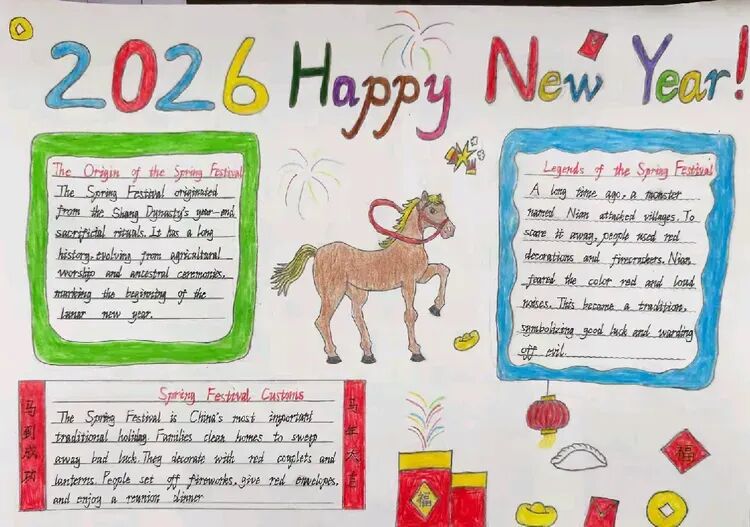 2026 Happy New Year!
The Origin of the Spring Festival
The Spring Festival originated
from the Shang Dynasty's year-end
sacrificial rituals. It has a long
history, evolving from agricultural
worship and ancestral ceremonies,
marking the beginning of the
lunar new year.
Legends of the Spring Festival
A long time ago, a monster
named Nian attacked villages. To
scare it away, people used red
decorations and firecrackers. Nian
feared the color red and loud
noises. This became a tradition,
symbolizing good luck and warding
off evil.
Spring Festival Customs
The Spring Festival is China's most important
traditional holiday. Families clean homes to sweep
away bad luck. They decorate with red couplets and
lanterns. People set off fireworks, give red envelopes,
and enjoy a reunion dinner
马到成功
马年大吉
福
福